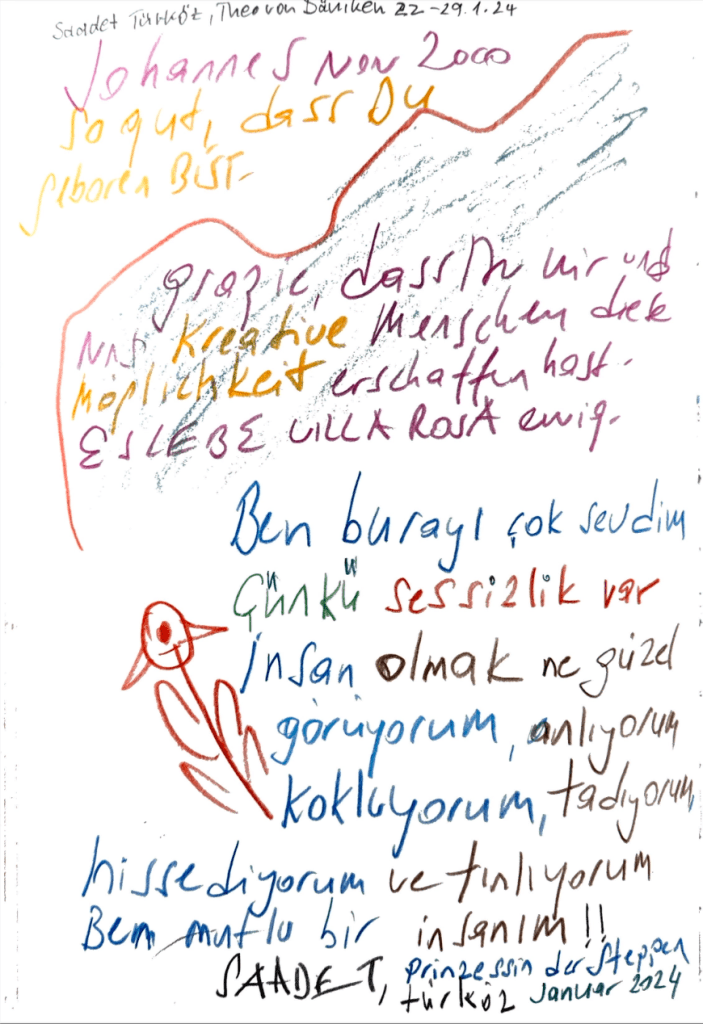 Saadet Türköz, Theo von Däniken 22-29.1.24
Johannes Nov 2000
so gut, dass Du
geboren BIST.
grazie, dass Du mir und
uns kreative Menschen diese
Möglichkeit erschaffen hast.
ES LEBE VILLA ROSA ewig.
Ben burayı çok sevdim
Çünkü sessizlik var
İnsan olmak ne güzel
görüyorum, anlıyorum
kokluyorum, tadıyorum,
hissediyorum ve tınlıyorum
Ben mutlu bir insanım!!
SAADET, prinzessin der Steppen
türköz Januar 2024